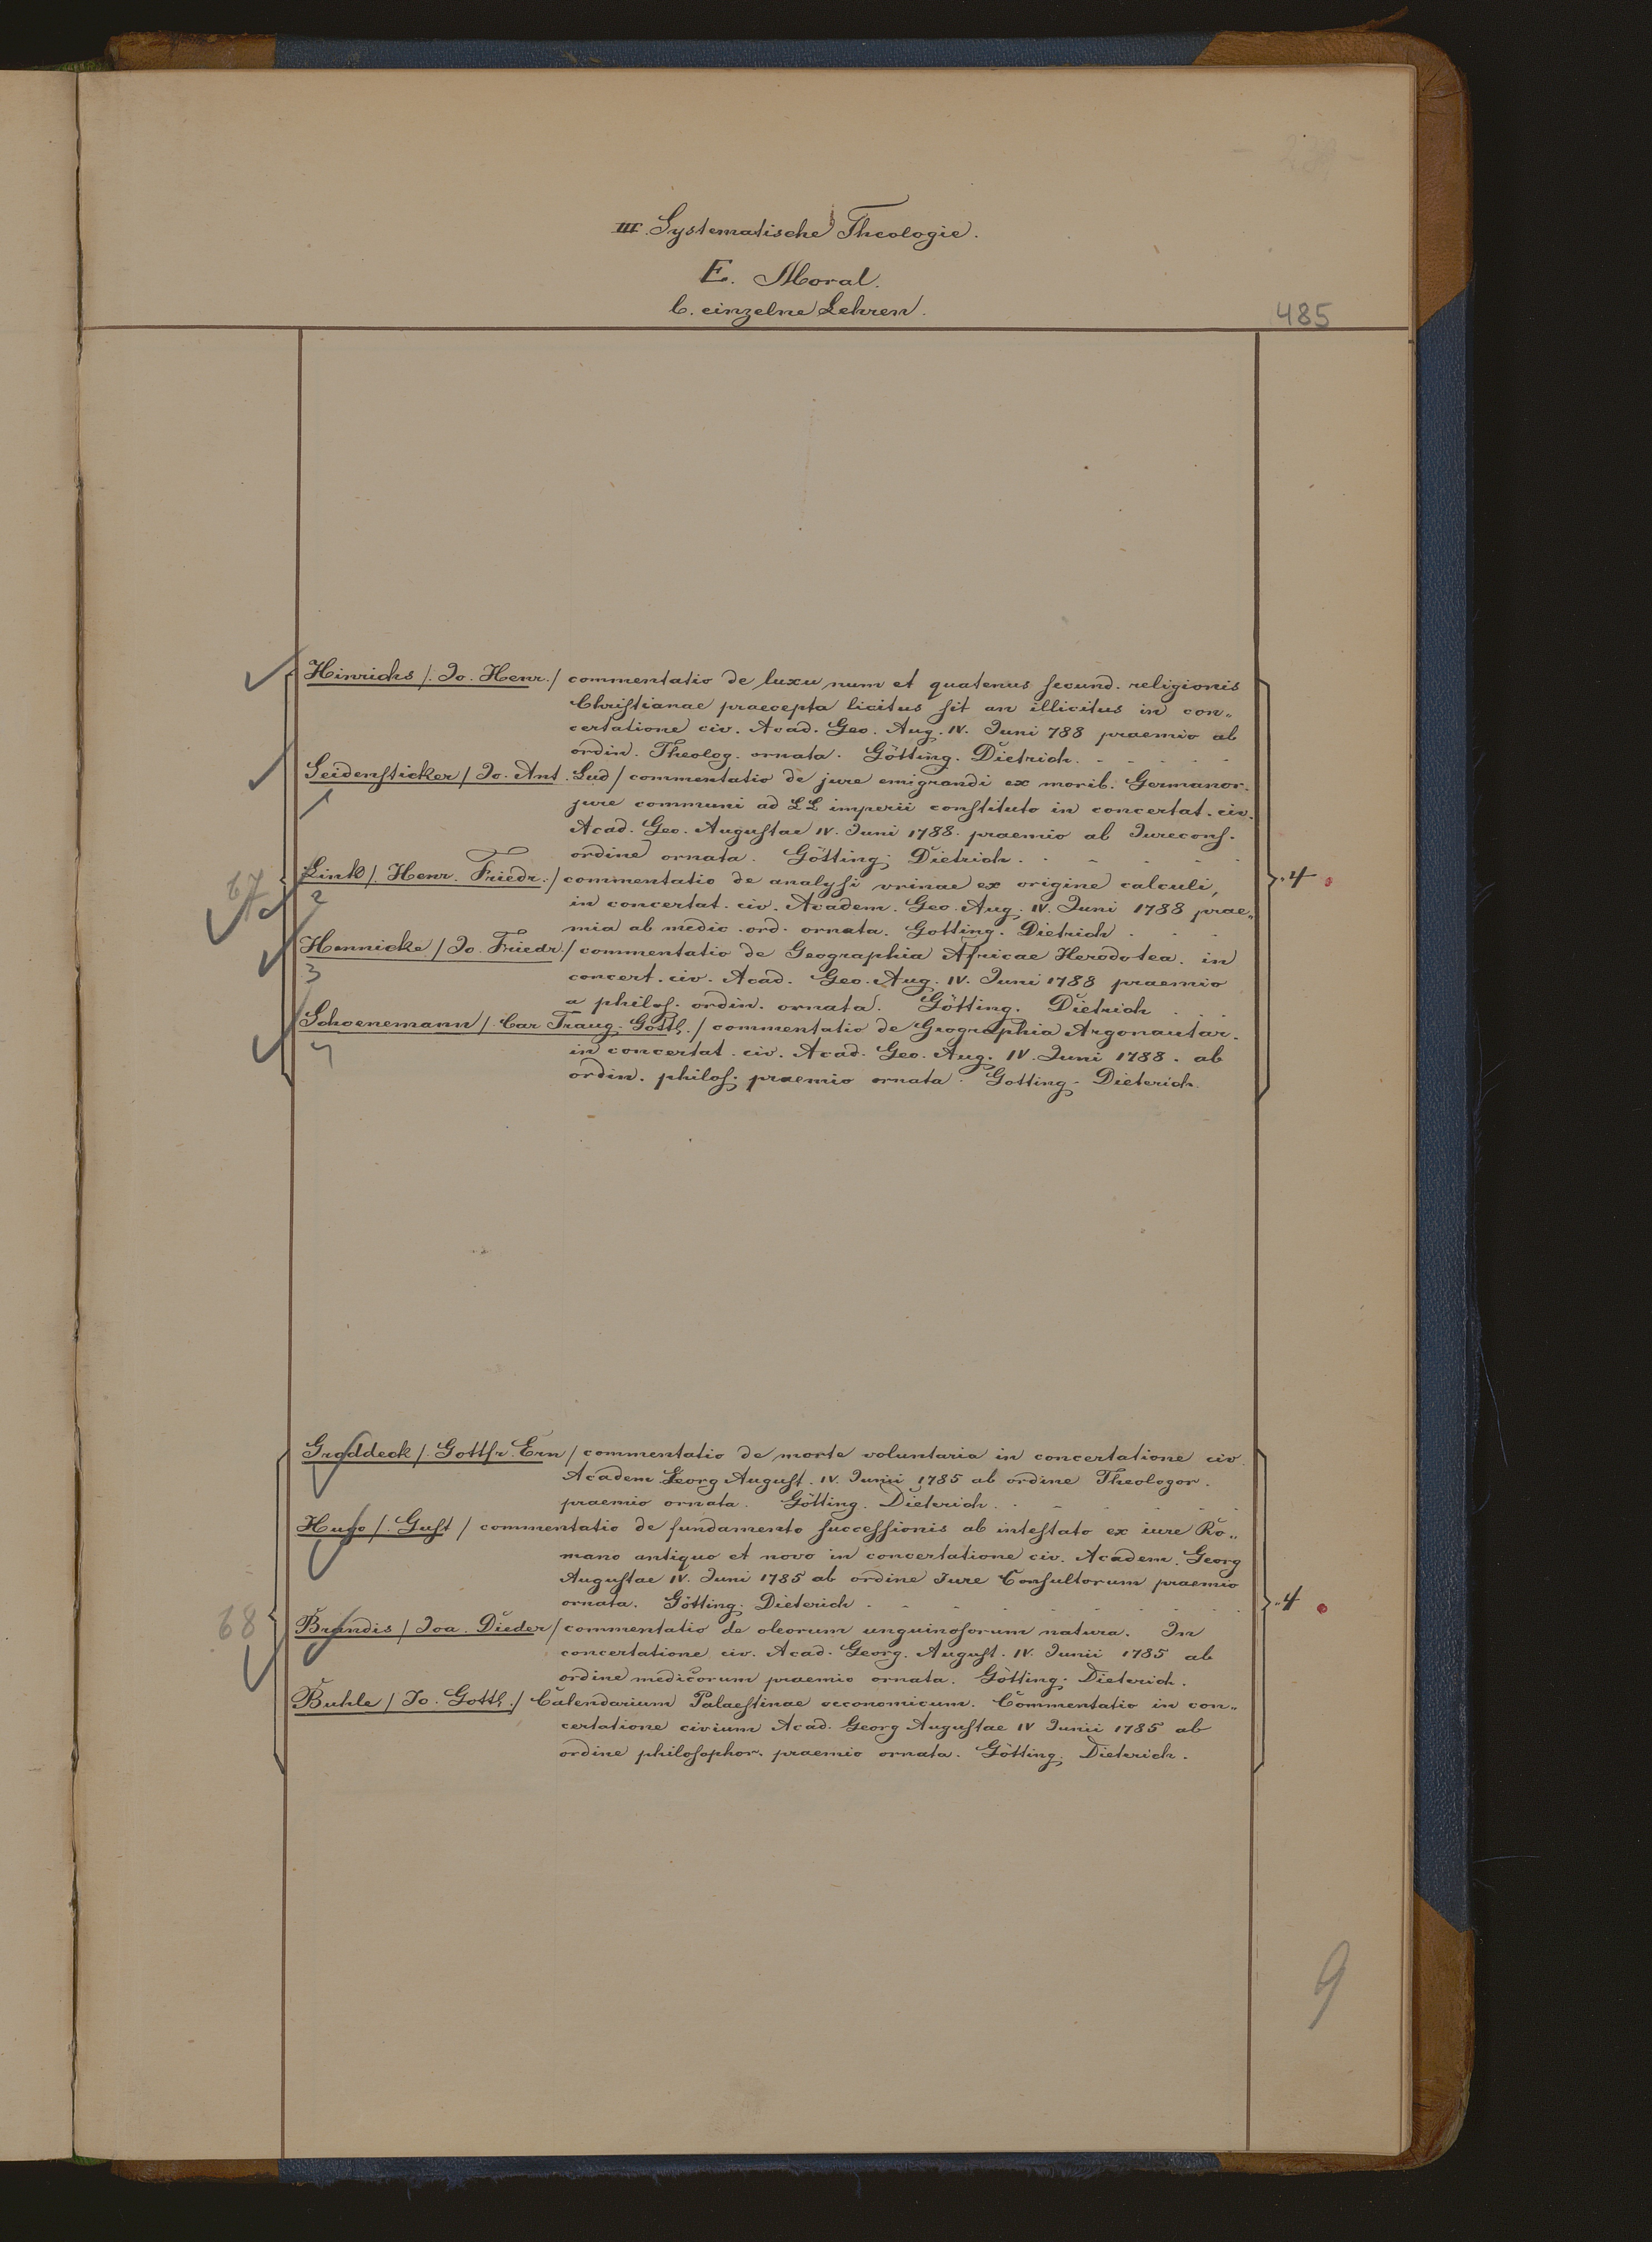 III. Systematische Theologie.
E. Moral.
b. einzelne Lehren.
485
Hinrichs /. Jo. Henr. / commentatio de luxu num et quatenus secund. religionis
Christianae praecepta licitus sit an illicitus in con„
certatione civ. Acad. Geo. Aug. IV. Juni 788 praemio ab
ordin. Theolog. ornata. Götting. Dietrich. - - - -
Seidensticker / Jo. Ant. Lud / commentatio de jure emigrandi ex morib. Germanor.
1
jure communi ad LL imperii constituto in concertat. civ.
Acad. Geo. Augustae IV. Juni 1788. praemio ab Jurecons.
ordine ornata. Götting. Dietrich. - - - -
67
Link /. Henr. Friedr. / commentatio de analysi vrinae ex origine calculi,
2
in concertat. civ. Academ. Geo. Aug. IV. Juni 1788 prae„
.4
mia ab medic. ord. ornata. Gotting. Dietrich . . .
Hennicke. / Jo. Friedr. / commentatio de Geographia Africae Herodotea. in
3
concert. civ. Acad. Geo. Aug. IV. Juni 1788 praemio
a philos. ordin. ornata. Götting. Dietrich . . .
Schoenemann /. Car Traug. Gottl. / commentatio de Geographia Argonautar.
4
in concertat. civ. Acad. Geo. Aug. IV. Juni 1788. ab
ordin. philos. praemio ornata. Gotting. Dieterich.
Groddeck /. Gottfr. Ern / commentatio de morte voluntaria in concertatione civ.
Academ Georg August. IV. Junii 1785 ab ordine Theologor.
praemio ornata. Götting. Dieterich. . - - - -
Hugo /. Gust / commentatio de fundamento successionis ab intestato ex iure Ro„
mano antiquo et novo in concertatione civ. Academ. Georg
Augustae IV. Juni 1785 ab ordine Jure Consultorum praemio
ornata. Götting. Dieterich . - - - - - -
.4
68
Brandis / Joa. Dieder / commentatio de oleorum unguinosorum natura. In
concertatione civ. Acad. Georg. August. IV. Junii 1785 ab
ordine medicorum praemio ornata. Götting. Dieterich.
Buhle / Jo. Gottl. / Calendarium Palaestinae oeconomicum. Commentatio in con„
certatione civium Acad. Georg Augustae IV Junii 1785 ab
ordine philosophor. praemio ornata. Götting. Dieterich.
9